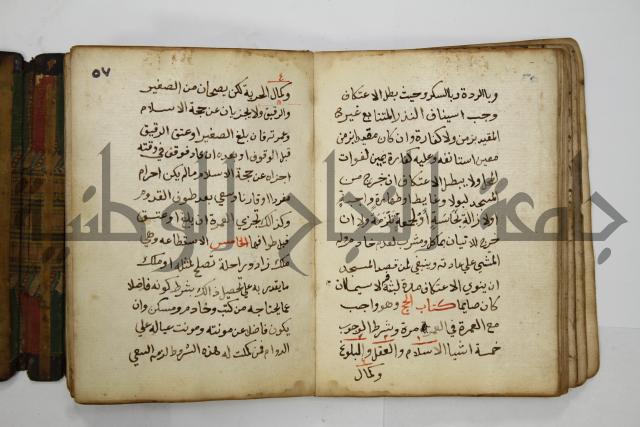 وبالردة وبالسكر وحيث بطل الاعتكاف
وجب استيناف النذر المتتابع غير
المقيد بزمن ولا كفارة وان كان مقيد ابزمن
معين استانفه وعليه كفارة يمين لفوات
المحل ولا يبطل الاعتكاف ان خرج من
المسجد لبول او غايط او طهارة واجبة
او لازالة نجاسة او لجمعة تلزمه ولا ان
خرج للاتيان بماكل ومشرب لعدم خادم وله
المشي على عادته وينبغي لمن قصد المسجد
ان ينوي الاعتكاف مدة لبثه لا سيما ان
كان صايما كتاب الحج وهو واجب
مع العمرة في العمر مرة وشرط الوجوب
خمسة اشيا الاسلام والعقل والبلوغ
وكمال
٥٧
وكمال الحرية لكن يصحان من الصغير
والرقيق ولا يجزيان عن حجة الاسلام
وعمرته فان بلغ الصغير او عتق الرقيق
قبل الوقوف او بعده ان عاد فوقف في وقته
اجزاه عن حجة الاسلام ما لم يكن احرم
مفردا او قارنا وسعى بعد طواف القدوم
وكذا تجزي العمرة ان بلغ او عتق
قبل طوافها الخامس الاستطاعة وهي
ملك زاد وراحلة تصلح لمثله او ملك
ما يقدر به على تحصيل ذلك بشرط كونه فاضلا
عما يحتاجه من كتب وخادم ومسكن وان
يكون فاضلا عن مونته ومونة عياله على
الدوام فمن كملت له هذه الشروط لزمه السعي
جامعة النجاح الوطنية